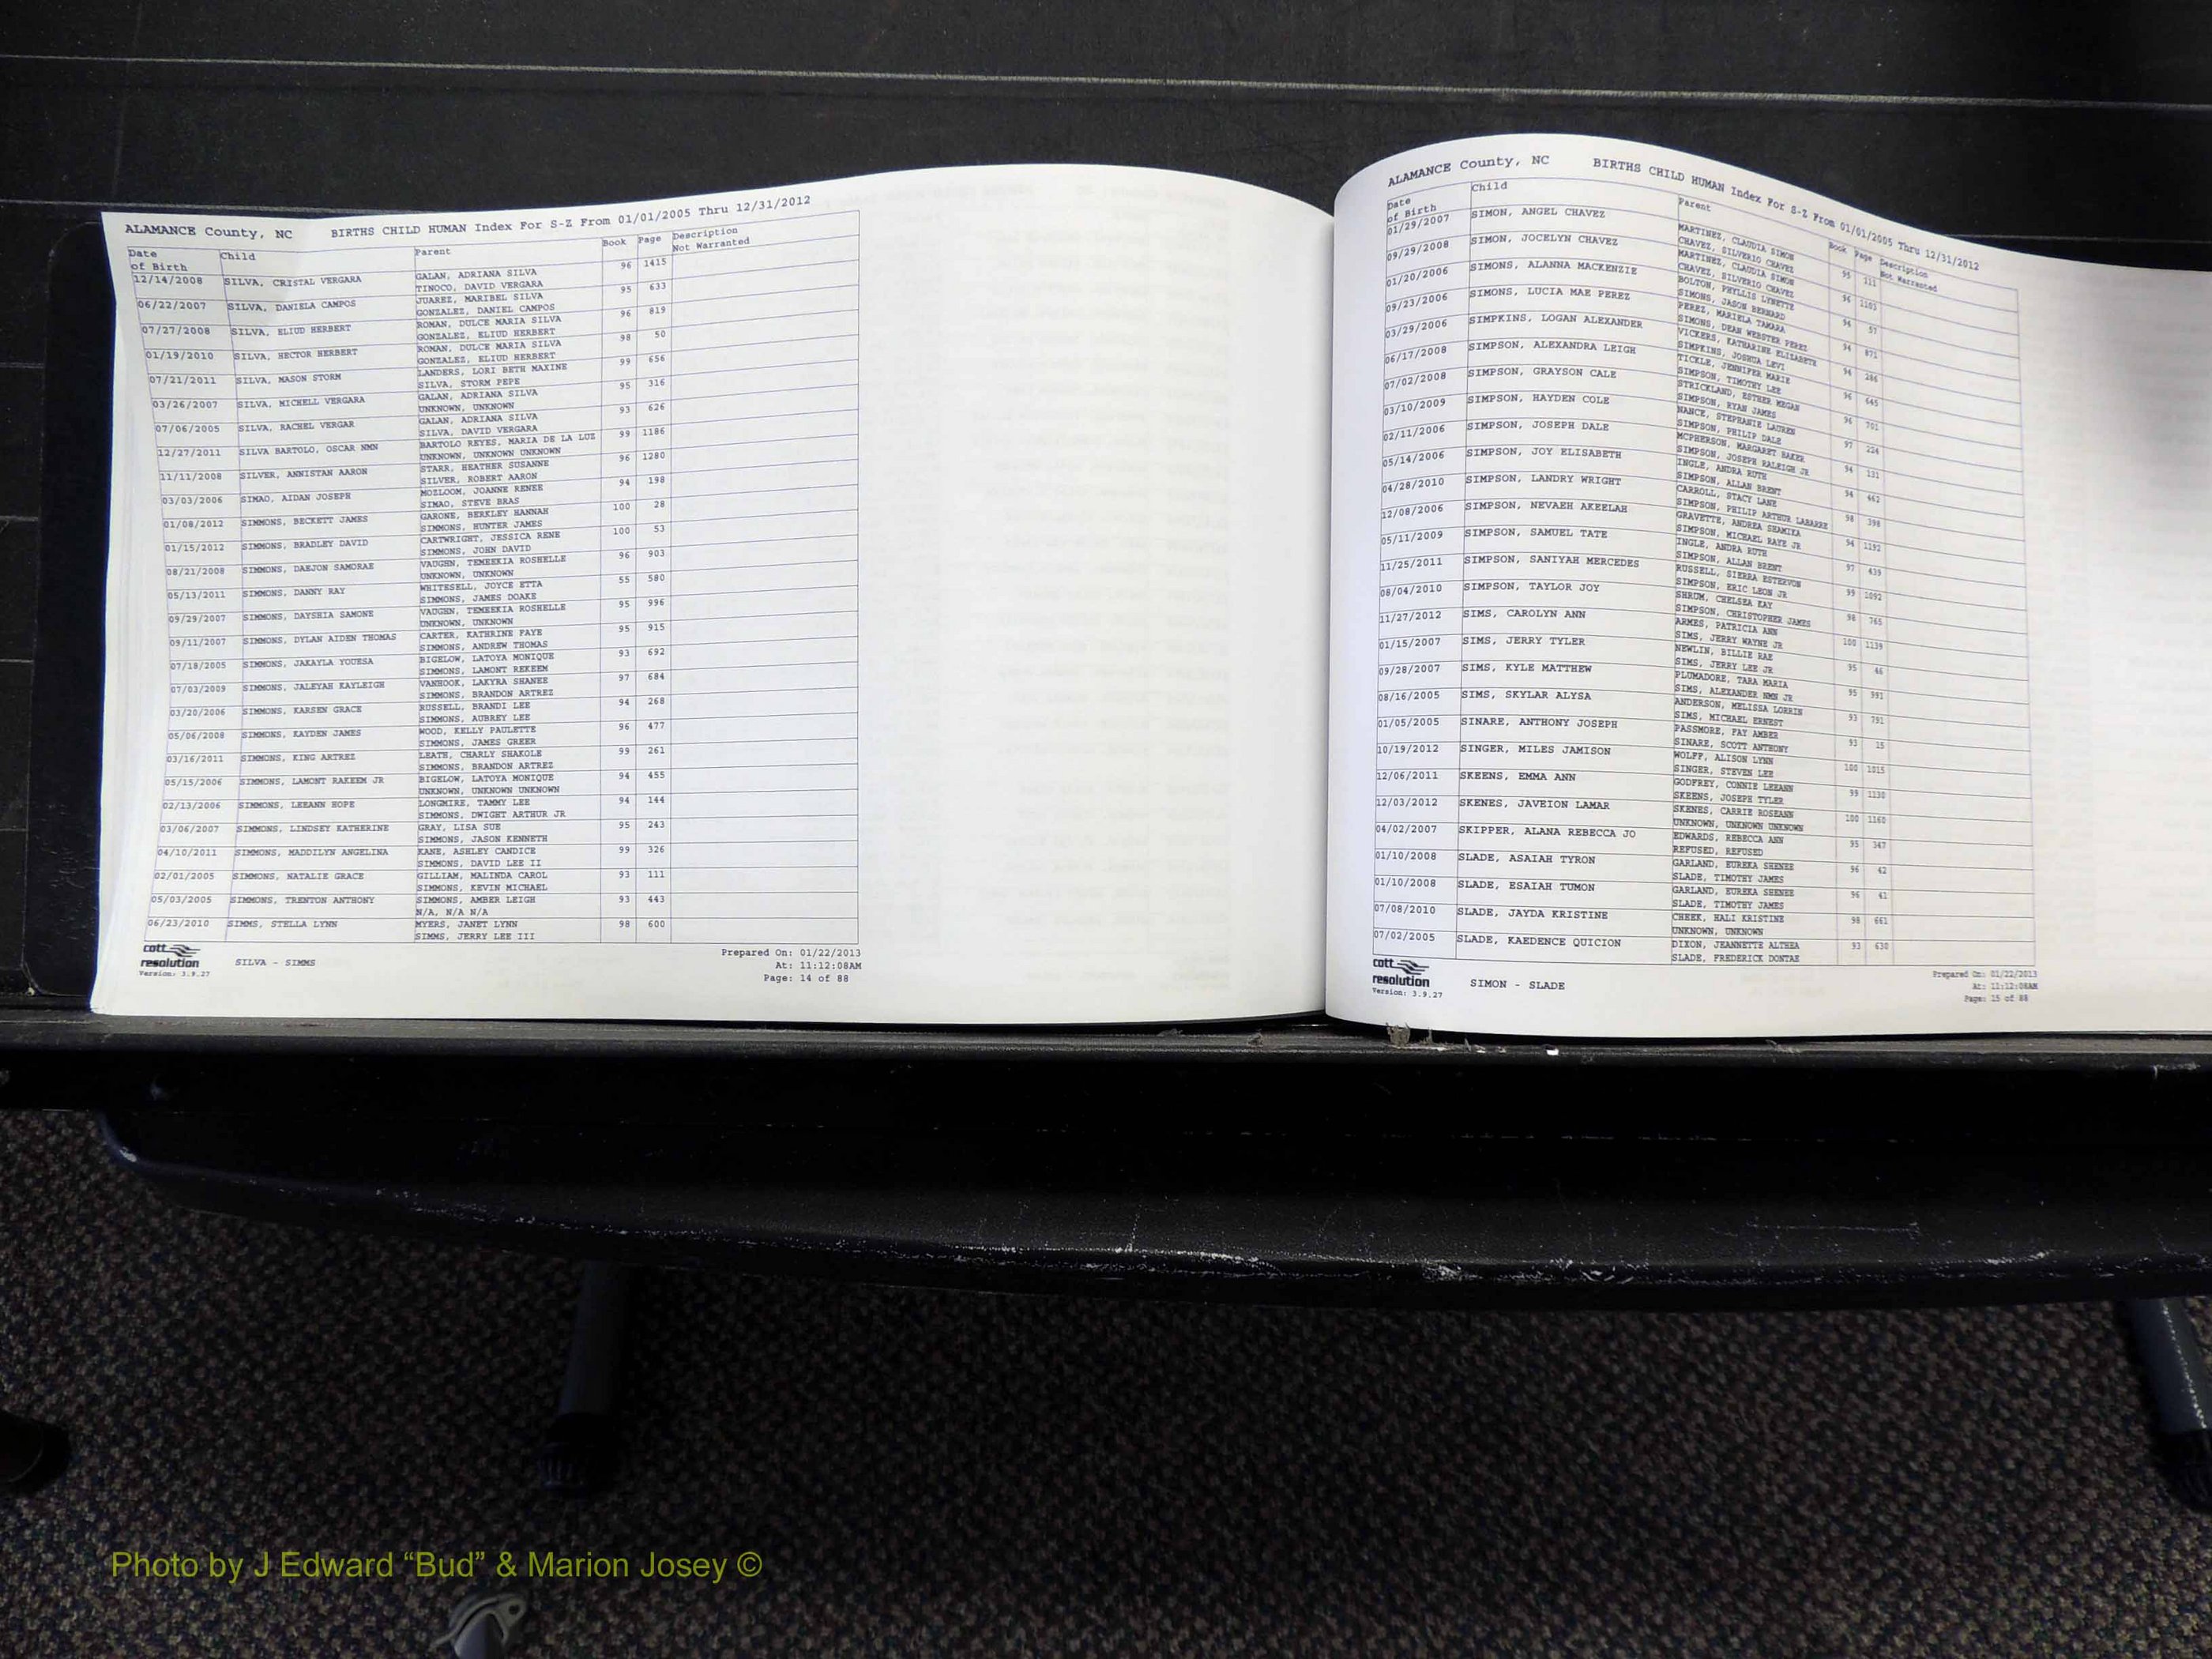 ALAMANCE County, NC BIRTHS CHILD HUMAN Index For S-Z From 01/01/2005 Thru 12/31/2012
Date of Birth Child Parent Book Page Description Not Warranted
12/14/2008 SILVA, CRISTAL VERGARA GALAN, ADRIANA SILVA 96 1415
TINOCO, DAVID VERGARA
06/22/2007 SILVA, DANIELA CAMPOS JUAREZ, MARIBEL SILVA 95 633
GONZALEZ, DANIEL CAMPOS
07/27/2008 SILVA, ELIUD HERBERT ROMAN, DULCE MARIA SILVA 96 819
GONZALEZ, ELIUD HERBERT
01/19/2010 SILVA, HECTOR HERBERT ROMAN, DULCE MARIA SILVA 98 50
GONZALEZ, ELIUD HERBERT
07/21/2011 SILVA, MASON STORM LANDERS, LORI BETH MAXINE 99 656
SILVA, STORM PEPE
03/26/2007 SILVA, MICHELL VERGARA GALAN, ADRIANA SILVA 95 316
UNKNOWN, UNKNOWN
07/06/2005 SILVA, RACHEL VERGAR GALAN, ADRIANA SILVA 93 626
SILVA, DAVID VERGARA
12/27/2011 SILVA BARTOLO, OSCAR NMN BARTOLO REYES, MARIA DE LA LUZ 99 1186
UNKNOWN, UNKNOWN UNKNOWN
11/11/2008 SILVER, ANNISTAN AARON STARR, HEATHER SUSANNE 96 1280
SILVER, ROBERT AARON
03/03/2006 SIMAO, AIDAN JOSEPH MOZLOOM, JOANNE RENEE 94 198
SIMAO, STEVE BRAS
01/08/2012 SIMMONS, BECKETT JAMES GARONE, BERKLEY HANNAH 100 28
SIMMONS, HUNTER JAMES
01/15/2012 SIMMONS, BRADLEY DAVID CARTWRIGHT, JESSICA RENE 100 53
SIMMONS, JOHN DAVID
08/21/2008 SIMMONS, DAEJON SAMORAE VAUGHN, TEMEEKIA ROSHELLE 96 903
UNKNOWN, UNKNOWN
05/13/2011 SIMMONS, DANNY RAY WHITESELL, JOYCE ETTA 55 580
SIMMONS, JAMES DOAKE
09/29/2007 SIMMONS, DAYSHIA SAMONE VAUGHN, TEMEEKIA ROSHELLE 95 996
UNKNOWN, UNKNOWN
09/11/2007 SIMMONS, DYLAN AIDEN THOMAS CARTER, KATHRINE FAYE 95 915
SIMMONS, ANDREW THOMAS
07/18/2005 SIMMONS, JAKAYLA YOUESA BIGELOW, LATOYA MONIQUE 93 692
SIMMONS, LAMONT REKEEM
07/03/2009 SIMMONS, JALEYAH KAYLEIGH VANHOOK, LAKYRA SHANEE 97 684
SIMMONS, BRANDON ARTREZ
03/20/2006 SIMMONS, KARSEN GRACE RUSSELL, BRANDI LEE 94 268
SIMMONS, AUBREY LEE
05/06/2008 SIMMONS, KAYDEN JAMES WOOD, KELLY PAULETTE 96 477
SIMMONS, JAMES GREER
03/16/2011 SIMMONS, KING ARTREZ LEATH, CHARLY SHAKOLE 99 261
SIMMONS, BRANDON ARTREZ
05/15/2006 SIMMONS, LAMONT RAKEEM JR BIGELOW, LATOYA MONIQUE 94 455
UNKNOWN, UNKNOWN UNKNOWN
02/13/2006 SIMMONS, LEEANN HOPE LONGMIRE, TAMMY LEE 94 144
SIMMONS, DWIGHT ARTHUR JR
03/06/2007 SIMMONS, LINDSEY KATHERINE GRAY, LISA SUE 95 243
SIMMONS, JASON KENNETH
04/10/2011 SIMMONS, MADDILYN ANGELINA KANE, ASHLEY CANDICE 99 326
SIMMONS, DAVID LEE II
02/01/2005 SIMMONS, NATALIE GRACE GILLIAM, MALINDA CAROL 93 111
SIMMONS, KEVIN MICHAEL
05/03/2005 SIMMONS, TRENTON ANTHONY SIMMONS, AMBER LEIGH 93 443
N/A, N/A N/A
06/23/2010 SIMMS, STELLA LYNN MYERS, JANET LYNN 98 600
SIMMS, JERRY LEE III
cott resolution Version: 3.9.27
SILVA - SIMMS
Prepared On: 01/22/2013
At: 11:12:08AM
Page: 14 of 88
ALAMANCE County, NC BIRTHS CHILD HUMAN Index For S-Z From 01/01/2005 Thru 12/31/2012
Date of Birth Child Parent Book Page Description Not Warranted
01/29/2007 SIMON, ANGEL CHAVEZ MARTINEZ, CLAUDIA SIMON 95 111
CHAVEZ, SILVERIO CHAVEZ
09/29/2008 SIMON, JOCELYN CHAVEZ MARTINEZ, CLAUDIA SIMON 96 1105
CHAVEZ, SILVERIO CHAVEZ
01/20/2006 SIMONS, ALANNA MACKENZIE BOLTON, PHYLLIS LYNETTE 94 57
SIMONS, JASON BERNARD
09/23/2006 SIMONS, LUCIA MAE PEREZ PEREZ, MARIELA TAMARA 94 871
SIMONS, DEAN WEBSTER PEREZ
03/29/2006 SIMPKINS, LOGAN ALEXANDER VICKERS, KATHARINE ELIZABETH 94 286
SIMPKINS, JOSHUA LEVI
06/17/2008 SIMPSON, ALEXANDRA LEIGH TICKLE, JENNIFER MARIE 96 645
SIMPSON, TIMOTHY LEE
07/02/2008 SIMPSON, GRAYSON CALE STRICKLAND, ESTHER MEGAN 96 701
SIMPSON, RYAN JAMES
03/10/2009 SIMPSON, HAYDEN COLE NANCE, STEPHANIE LAUREN 97 224
SIMPSON, PHILIP DALE
02/11/2006 SIMPSON, JOSEPH DALE MCPHERSON, MARGARET BAKER 94 131
SIMPSON, JOSEPH RALEIGH JR
05/14/2006 SIMPSON, JOY ELISABETH INGLE, ANDRA RUTH 94 462
SIMPSON, ALLAN BRENT
04/28/2010 SIMPSON, LANDRY WRIGHT CARROLL, STACY LANE 98 398
SIMPSON, PHILIP ARTHUR LABARRE
12/08/2006 SIMPSON, NEVAEH AKEELAH GRAVETTE, ANDREA SHAMIKA 94 1192
SIMPSON, MICHAEL RAYE JR
05/11/2009 SIMPSON, SAMUEL TATE INGLE, ANDRA RUTH 97 439
SIMPSON, ALLAN BRENT
11/25/2011 SIMPSON, SANIYAH MERCEDES RUSSELL, SIERRA ESTERVON 99 1092
SIMPSON, ERIC LEON JR
08/04/2010 SIMPSON, TAYLOR JOY SHRUM, CHELSEA KAY 98 765
SIMPSON, CHRISTOPHER JAMES
11/27/2012 SIMS, CAROLYN ANN ARMES, PATRICIA ANN 100 1139
SIMS, JERRY WAYNE JR
01/15/2007 SIMS, JERRY TYLER NEWLIN, BILLIE RAE 95 46
SIMS, JERRY LEE JR
09/28/2007 SIMS, KYLE MATTHEW PLUMADORE, TARA MARIA 95 991
SIMS, ALEXANDER NMN JR
08/16/2005 SIMS, SKYLAR ALYSA ANDERSON, MELISSA LORRIN 93 791
SIMS, MICHAEL ERNEST
01/05/2005 SINARE, ANTHONY JOSEPH PASSMORE, FAY AMBER 93 15
SINARE, SCOTT ANTHONY
10/19/2012 SINGER, MILES JAMISON WOLFF, ALISON LYNN 100 1015
SINGER, STEVEN LEE
12/06/2011 SKEENS, EMMA ANN GODFREY, CONNIE LEEANN 99 1130
SKEENS, JOSEPH TYLER
12/03/2012 SKENES, JAVEION LAMAR SKENES, CARRIE ROSEANN 100 1160
UNKNOWN, UNKNOWN UNKNOWN
04/02/2007 SKIPPER, ALANA REBECCA JO EDWARDS, REBECCA ANN 95 347
REFUSED, REFUSED
01/10/2008 SLADE, ASAIAH TYRON GARLAND, EUREKA SHENEE 96 42
SLADE, TIMOTHY JAMES
01/10/2008 SLADE, ESAIAH TUMON GARLAND, EUREKA SHENEE 96 41
SLADE, TIMOTHY JAMES
07/08/2010 SLADE, JAYDA KRISTINE CHEEK, HALI KRISTINE 98 661
UNKNOWN, UNKNOWN
07/02/2005 SLADE, KAEDENCE QUICION DIXON, JEANNETTE ALTHEA 93 630
SLADE, FREDERICK DONTAE
cott resolution Version: 3.9.27
SIMON - SLADE
Prepared On: 01/22/2013
At: 11:12:08AM
Page: 15 of 88
Photo by J Edward “Bud” & Marion Josey ©